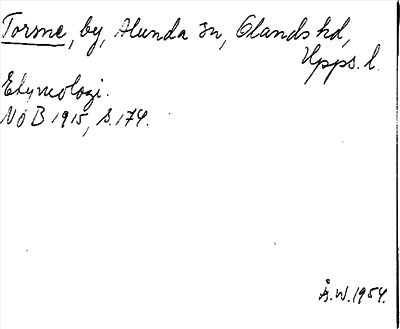 Torsne, by, Alunda sn, Olands hd,
Upps. l.
Etymologi.
NoB 1915, s. 174.
Å.W. 1954.